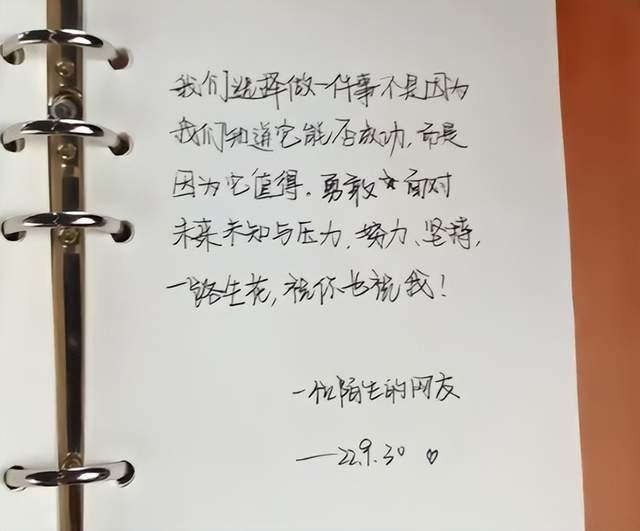 我们选择做一件事不是因为
我们知道它能否成功,而是
因为它值得。勇敢面对
未来未知与压力,努力、坚持,
一路生花,祝你也祝我!
一位陌生的网友
——22.9.30 ♡